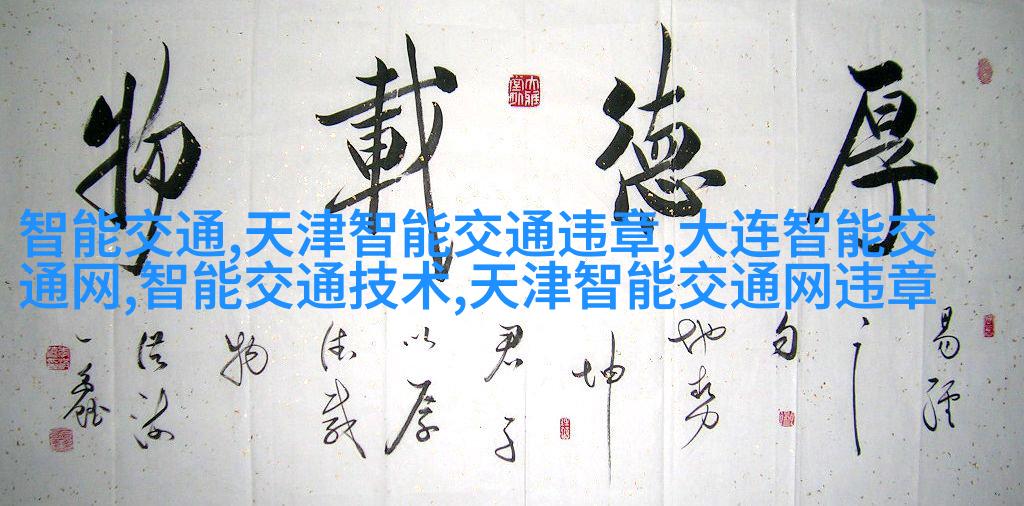 厚德載物
智能交通,天津智能交通违章,大连智能交
通网,智能交通技术,天津智能交通网违章
易經
之
句
地势
坤
君子
以厚
德载
物